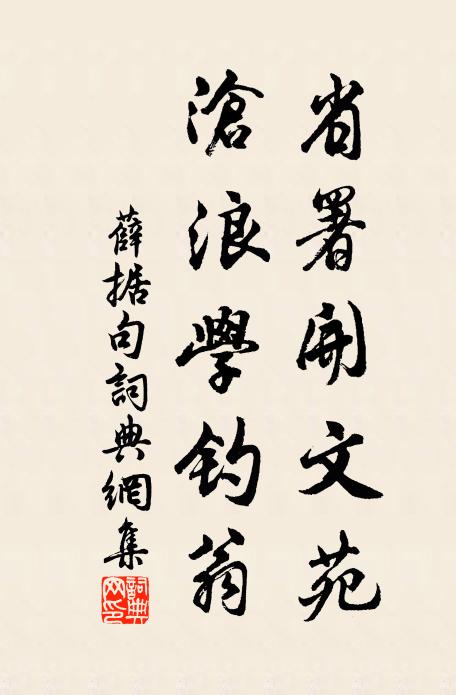 省署開文苑
滄浪學釣翁
薛據句詞典網集
詞典网印